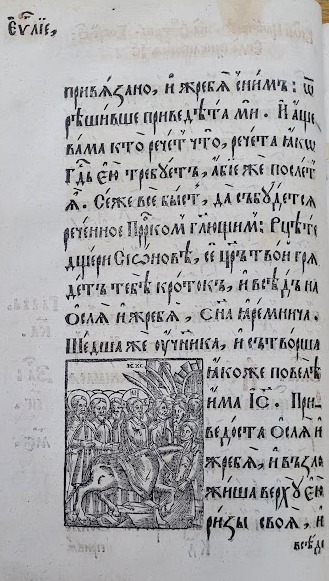 Єѵⷢ҇лїе,
привѧзано, и҆ жребѧ̀ сни́мъ: ѿ
рѣши́вше приведѣ́та мѝ. И҆ а҆́ще
ва́ма кто̀ рече́тъ что̀, рече́та ꙗ҆́кѡ
гдⷭ҇ь є҆ю̀ тре́буетъ, а҆́бїе же по́слетъ
ѧ҆̀. Се́же всѐ бы́сть, да сбу́детсѧ
рече́нное прⷪ҇ркомъ гл҃ющимъ: Рцѣ́те
дще́ри сїѡ́новѣ, сѐ цр҃ь тво́й грѧ
де́тъ тебѣ̀ кро́токъ, и҆ всѣ́дъ на
о҆слѧ̀ и҆ жребѧ̀, сы́на ꙗ҆ре́мнича.
Ше́дша же ѹ҆чн҃ика̀, и҆ сътво́рша
ꙗ҆́коже повелѣ̀
и҆́ма і҆с҃. При
ведо́ста о҆слѧ̀ и҆
жребѧ̀, и҆ възло
жи́ша верхꙋ̀ є҆ю̀
ри́зы своѧ̀, и҆
всѣ́де